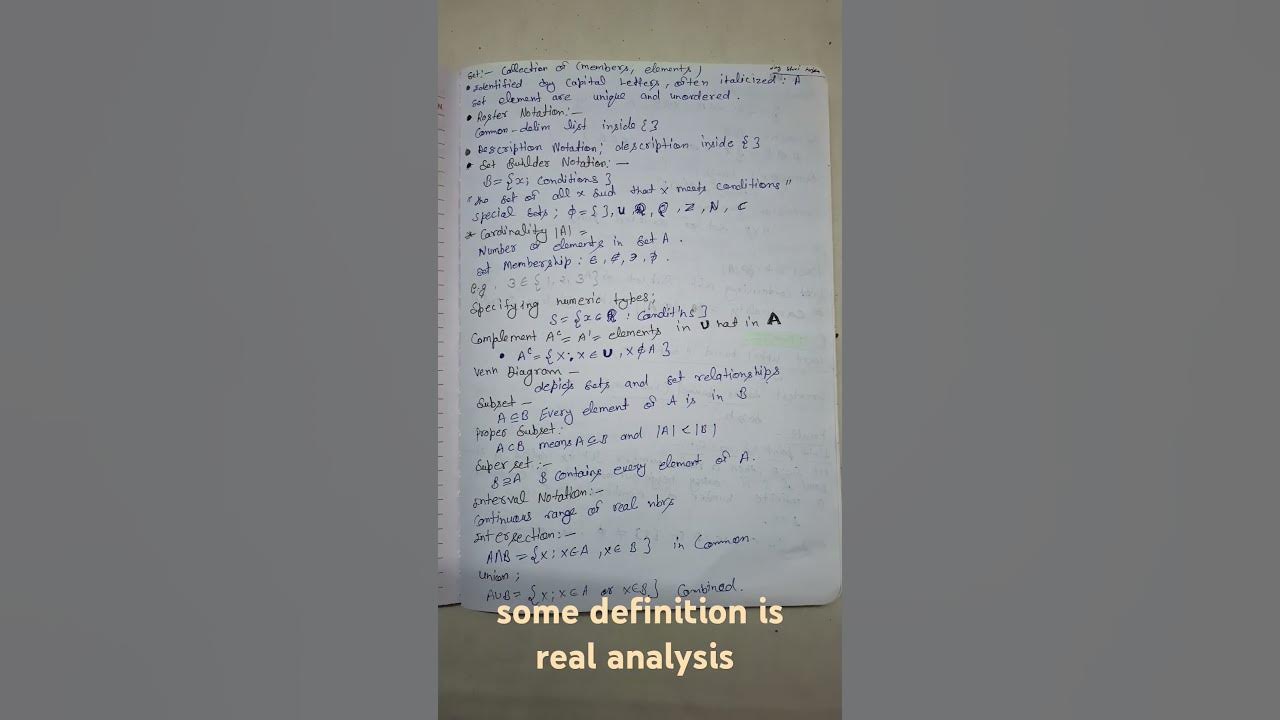 Set:- Collection of (members, elements)
• Identified by Capital Letters, often italicized: A
Set element are unique and unordered.
• Roster Notation:-
Common-delim list inside { }
• Description Notation; description inside { }
• Set Builder Notation:-
B = {x; Conditions}
"the set of all x such that x meets conditions"
Special sets; ϕ = { }, U, R, Q, Z, N, C
* Cardinality |A| =
Number of elements in set A.
Set Membership: ∈, ∉, ∋,
e.g. 3 ∈ {1, 2, 3}
Specifying numeric types;
S = {x ∈ R : Conditins}
Complement Aᶜ = A' = elements in U nat in A
• Aᶜ = {x; x ∈ U, x ∉ A}
Venn Diagram -
depicts sets and set relationships
Subset -
A ⊆ B Every element of A is in B
Proper Subset:
A ⊂ B means A ⊆ B and |A| < |B|
Super set:-
B ⊇ A B Contains every element of A.
Interval Notation:-
Continuous range of real nbrs
Intersection:-
A∩B = {x; x∈A, x∈B} in Common.
Union;
A∪B = {x; x∈A or x∈B} Combined.
some definition is
real analysis